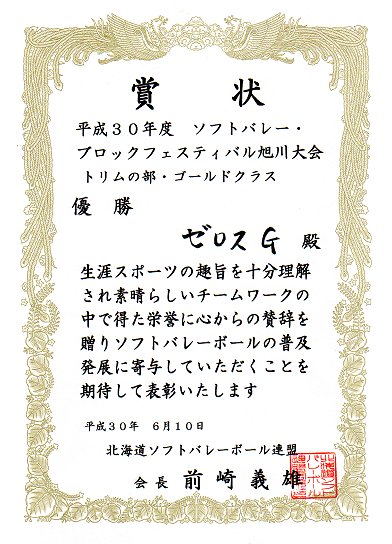 賞状
平成30年度 ソフトバレー・
ブロックフェスティバル旭川大会
トリムの部・ゴールドクラス
優勝
ゼロスG 殿
生涯スポーツの趣旨を十分理解
され素晴らしいチームワークの
中で得た栄誉に心からの賛辞を
贈りソフトバレーボールの普及
発展に寄与していただくことを
期待して表彰いたします
平成30年 6月10日
北海道ソフトバレーボール連盟
会長 前崎義雄